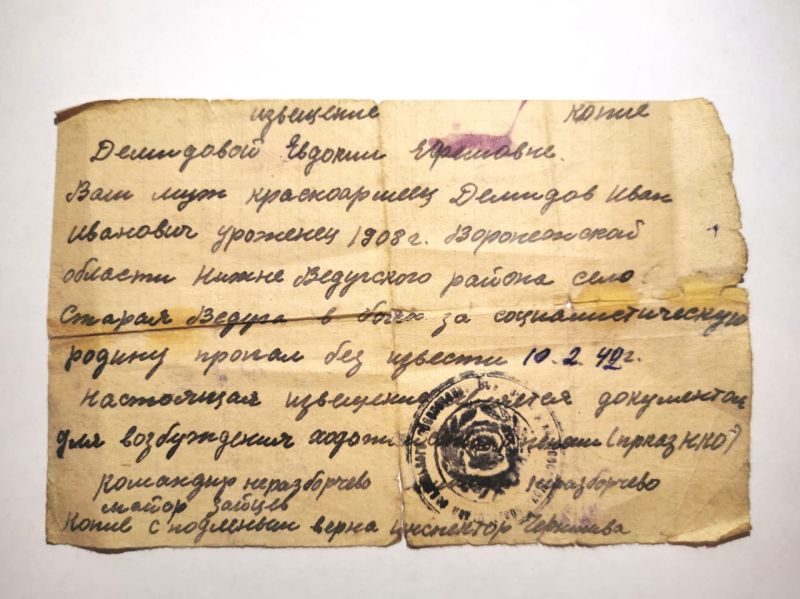 извещение копие
Демидовой Евдокии Ефимовне.
Ваш муж красноармеец Демидов Иван
Иванович уроженец 1908 г. Воронежской
области Нижне Ведугского района село
Старая Ведуга в боях за социалистическую
родину пропал без извести 10.2.42 г.
Настоящая извещение документом
для возбуждения (приказ НКО)
Командир неразборчево неразборчево
майор Зайцев
Копие с подленым верна инспектор